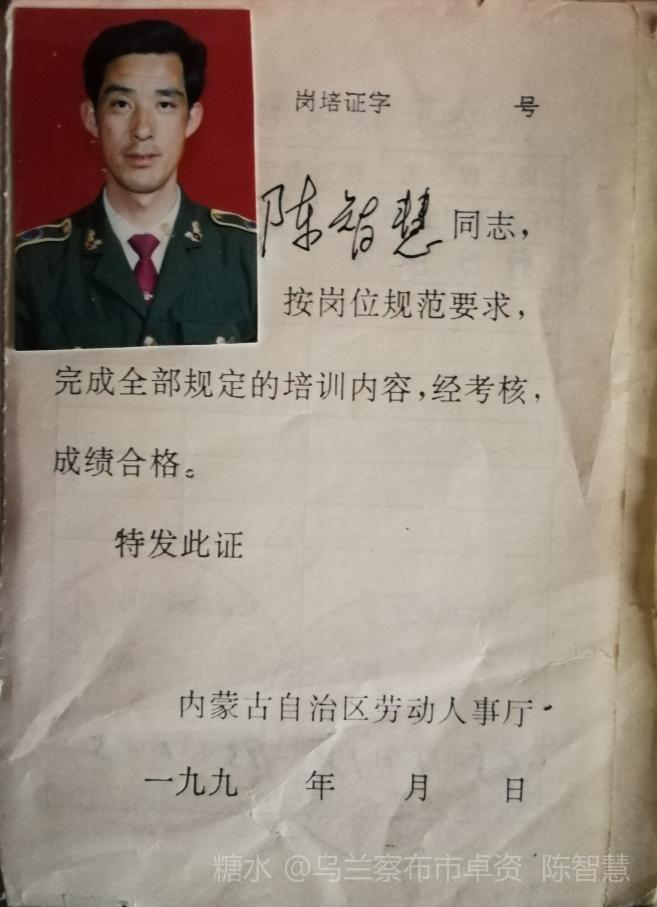 岗培证字 号
陈智慧同志，
按岗位规范要求，
完成全部规定的培训内容，经考核，
成绩合格。
特发此证
内蒙古自治区劳动人事厅
一九九 年 月 日
糖水 @乌兰察布市卓资 陈智慧